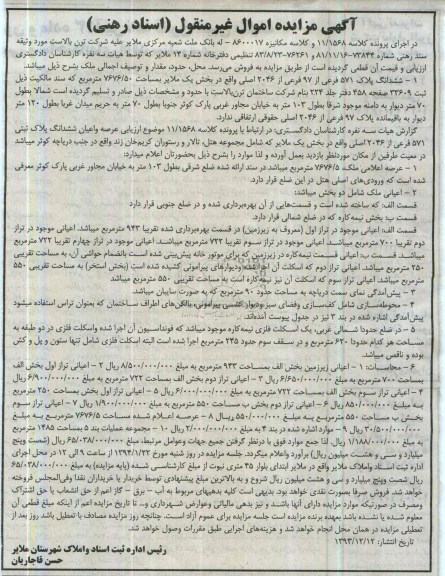 آگهی مزایده اموال غیرمنقول (اسناد رهنی)
در اجرای پرونده کلاسه ۱۱/۱۵۶۸ و کلاسه مکانیزه ۸۶۰۰۰۱۷ – له بانک ملت شعبه مرکزی ملایر علیه شرکت ترن بالاست مورد وثیقه
سند رهنی شماره ۷۳۸۴۴–۸۱/۱۱/۱۶ و ۷۶۲۶۱–۸۳/۸/۲۳ تنظیمی دفترخانه شماره ۱۴ ملایر که توسط هیات سه نفره کارشناسان دادگستری
ارزیابی و قیمت آن قطعی گردیده است از طریق مزایده به فروش می‌رسد. محل، حدود، مقدار و توصیف اجمالی ملک بشرح ذیل میباشد:
۱ – ششدانگ پلاک ۵۷۱ فرعی از ۹۷ فرعی از ۲۰۴۶ اصلی واقع در بخش یک ملایر بمساحت ۷۶۷۶/۵۰ مترمربع که سند مالکیت ذیل
ثبت ۳۳۶۰۹ صفحه ۴۵۸ دفتر جلد ۲۲۴ بنام شرکت ساختمان ترن‌بالاست با حدود و مشخصات ذیل صادر و تسلیم گردیده است شمالا بطول
۷۰ متر دیوار به دامنه موجود شرقا بطول ۱۰۳ متر به خیابان مجاور غربی پارک کوثر جنوبا بطول ۷۰ متر به حریم میدان غربا بطول ۱۲۰ متر
دیوار به باقیمانده پلاک ۹۷ فرعی از ۲۰۴۶ اصلی حقوقی ارتفاقی ندارد.
گزارش هیات سه نفره کارشناسان دادگستری: در ارتباط با پرونده کلاسه ۱۱/۱۵۶۸ موضوع ارزیابی عرصه واعیان ششدانگ پلاک ثبتی
۵۷۱ فرعی از ۲۰۴۶ اصلی واقع در بخش یک ملایر که شامل مجموعه هتل، تالار و رستوران کریم‌خان زند واقع در جنب دریاچه کوثر میباشد
در معیت طرفین از مکان موردنظر بازدید بعمل آورده و لذا موارد را بشرح ذیل بحضورتان اعلام میدارد:
۱ – عرصه اعلامی ملک ۷۶۷۶/۵ مترمربع میباشد در سند ارائه شده ضلع شرقی بطول ۱۰۳ متر به خیابان مجاور غربی پارک کوثر معرفی
شده است که ورودی‌های اصلی هتل در این ضلع قرار دارد.
۲ – اعیانی ملک شامل دو بخش میباشد:
قسمت الف: که ساخته شده است و قسمت‌هایی از آن بهره‌برداری شده و در ضلع جنوبی قرار دارد
قسمت ب: بخش نیمه کاره که در ضلع شمالی قرار دارد.
قسمت الف: اعیانی موجود در تراز اول (معروف به زیرزمین) در قسمت بهره‌برداری شده تقریبا ۹۴۳ مترمربع میباشد. اعیانی موجود در تراز
دوم تقریبا ۷۰۰ مترمربع میباشد. اعیانی موجود در تراز سوم تقریبا ۷۲۲ مترمربع میباشد. اعیانی موجود در تراز چهارم تقریبا ۷۲۲ مترمربع
میباشد. قسمت ب: اعیانی قسمت نیمه‌کاره در زیرزمین که برای موتور خانه پیش‌بینی شده است بانضمام حواشی آن، به مساحت تقریبی
۲۵۰ مترمربع میباشد. اعیانی تراز دوم که اسکلت آن اجرا شده ودیوارهای پیرامونی کشیده شده است (بخش استخر) به مساحت تقریبی ۵۵۰
مترمربع میباشد. اعیانی تراز سوم که اسکلت آن نیز نیمه‌کاره است به مساحت تقریبی ۵۵۰ مترمربع میباشد
۳ – پیش‌آمدگی نمای سمت دریاچه به مساحت حدود ۹۰ مترمربع که به صورت سایبان میباشد.
۴ – محوطه‌سازی شامل کف‌سازی وفضای سبز ودیوار کشی پیرامونی، بالکن‌های اطراف ساختمان که بعنوان تراس استفاده میشود
پیش‌آمدگی اشاره شده در بند ۳ نیز در جدول پیوست آمده‌اند.
۵ – در ضلع حدودا شمالی غربی، یک اسکلت فلزی نیمه‌کاره موجود میباشد که فونداسیون آن اجرا شده واسکلت فلزی در دو طبقه به
مساحت هر کدام حدودا ۶۲۰ مترمربع و در سقف سوم حدود ۲۳۵ مترمربع اجرا شده است البته اسکلت فلزی شامل تنها ستون و پل و کش
بوده و ناقص میباشد.
۶ – محاسبات: ۱ – اعیانی زیرزمین بخش الف بمساحت ۹۴۳ مترمربع به مبلغ ۸/۵۰۰/۰۰۰/۰۰۰ ریال ۲ – اعیانی تراز اول بخش الف
بمساحت ۷۰۰ مترمربع به مبلغ ۶/۶۵۰/۰۰۰/۰۰۰ ریال ۳ – اعیانی تراز دوم بخش الف بمساحت ۷۲۲ مترمربع به مبلغ ۶/۹۰۰/۰۰۰/۰۰۰ ریال
۴ – اعیانی تراز سوم بخش الف بمساحت ۷۲۲ مترمربع به مبلغ ۶/۰۰۰/۰۰۰/۰۰۰ ریال ۵ – اعیانی تراز اول بخش ب بمساحت ۲۵۰ مترمربع
به مبلغ ۸۵۰/۰۰۰/۰۰۰ ریال ۶ – اعیانی تراز دوم بخش ب بمساحت ۵۵۰ مترمربع به مبلغ ۱/۹۰۰/۰۰۰/۰۰۰ ریال ۷ – اعیانی تراز سوم
بخش ب بمساحت ۵۵۰ مترمربع به مبلغ ۵۵۰/۰۰۰/۰۰۰ ریال ۸ – عرصه اعلام شده بمساحت ۷۶۷۶/۵ مترمربع به مبلغ
۳۰/۵۰۰/۰۰۰/۰۰۰ ریال ۹ – موارد اشاره شده در بند ۴ به مبلغ ۲/۰۰۰/۰۰۰/۰۰۰ ریال ۱۰ – مجموعه عملیات بند ۵ بمساحت ۱۴۸۵ مترمربع
به مبلغ ۱/۱۸۸/۰۰۰/۰۰۰ ریال. لذا جمع موارد فوق با درنظر گرفتن جمیع جهات وعوامل مرتبط، مبلغ ۶۵/۰۳۸/۰۰۰/۰۰۰ ریال (شصت وپنج
میلیارد و سی و هشت میلیون ریال) برآورد واعلام میگردد. جلسه مزایده در روز شنبه مورخ ۱۳۹۴/۱/۲۲ از ساعت ۹ الی ۱۲ در محل اجرای
اداره ثبت اسناد واملاک ملایر واقع در ملایر ابتدای بلوار ۴۵ متری نبوت از مبلغ کارشناسی شده (پایه مزایده) به مبلغ ۶۵/۰۳۸/۰۰۰/۰۰۰
ریال شصت وپنج میلیارد و سی و هشت میلیون ریال شروع و به بالاترین مبلغ پیشنهادی توسط خریدار یا خریداران نقدا وفی‌المجلس فروخته
خواهد شد. فروش صرفا بصورت نقدی خواهد بود. بدیهی است کلیه بدهیهای مربوط به آب – برق – گاز اعم از حق انشعاب یا حق اشتراک
ومصرف در صورتیکه موارد مزایده دارای آنها باشد و نیز بدهی مالیاتی وعوارض شهرداری و.. تا تاریخ مزایده اعم از اینکه مبلغ قطعی آن
معلوم شده یا نشده باشد بعهده برنده مزایده است جلسه مزایده برای عموم آزاد است. چنانچه روز مزایده مصادف با تعطیل باشد روز بعد از
تعطیلی مزایده در همان محل انجام خواهد شد و هزینه‌های اجرایی طبق مقررات وصول خواهد شد.
تاریخ انتشار: ۱۳۹۳/۱۲/۱۲
رئیس اداره ثبت اسناد واملاک شهرستان ملایر
حسن قاجاریان